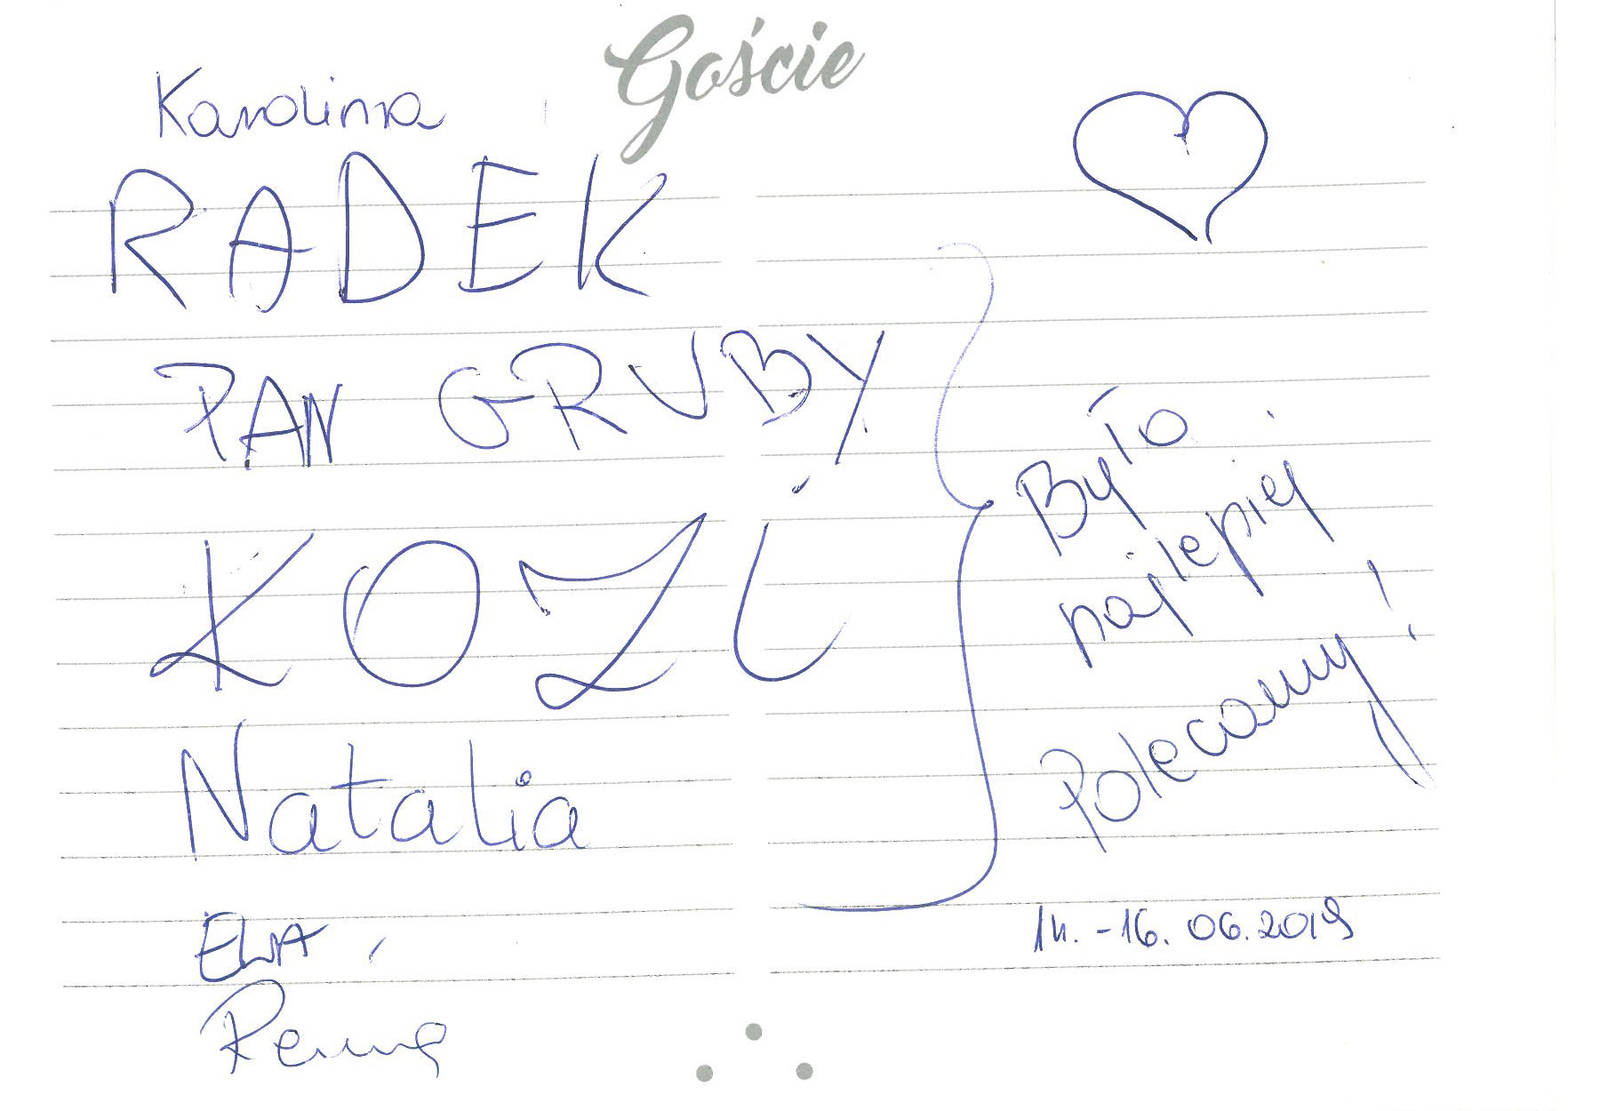 Goście
Karolina
RADEK
PAN GRUBY
KOZI
Natalia
EWA
Było
najlepiej
Polecamy!
14.-16.06.2019